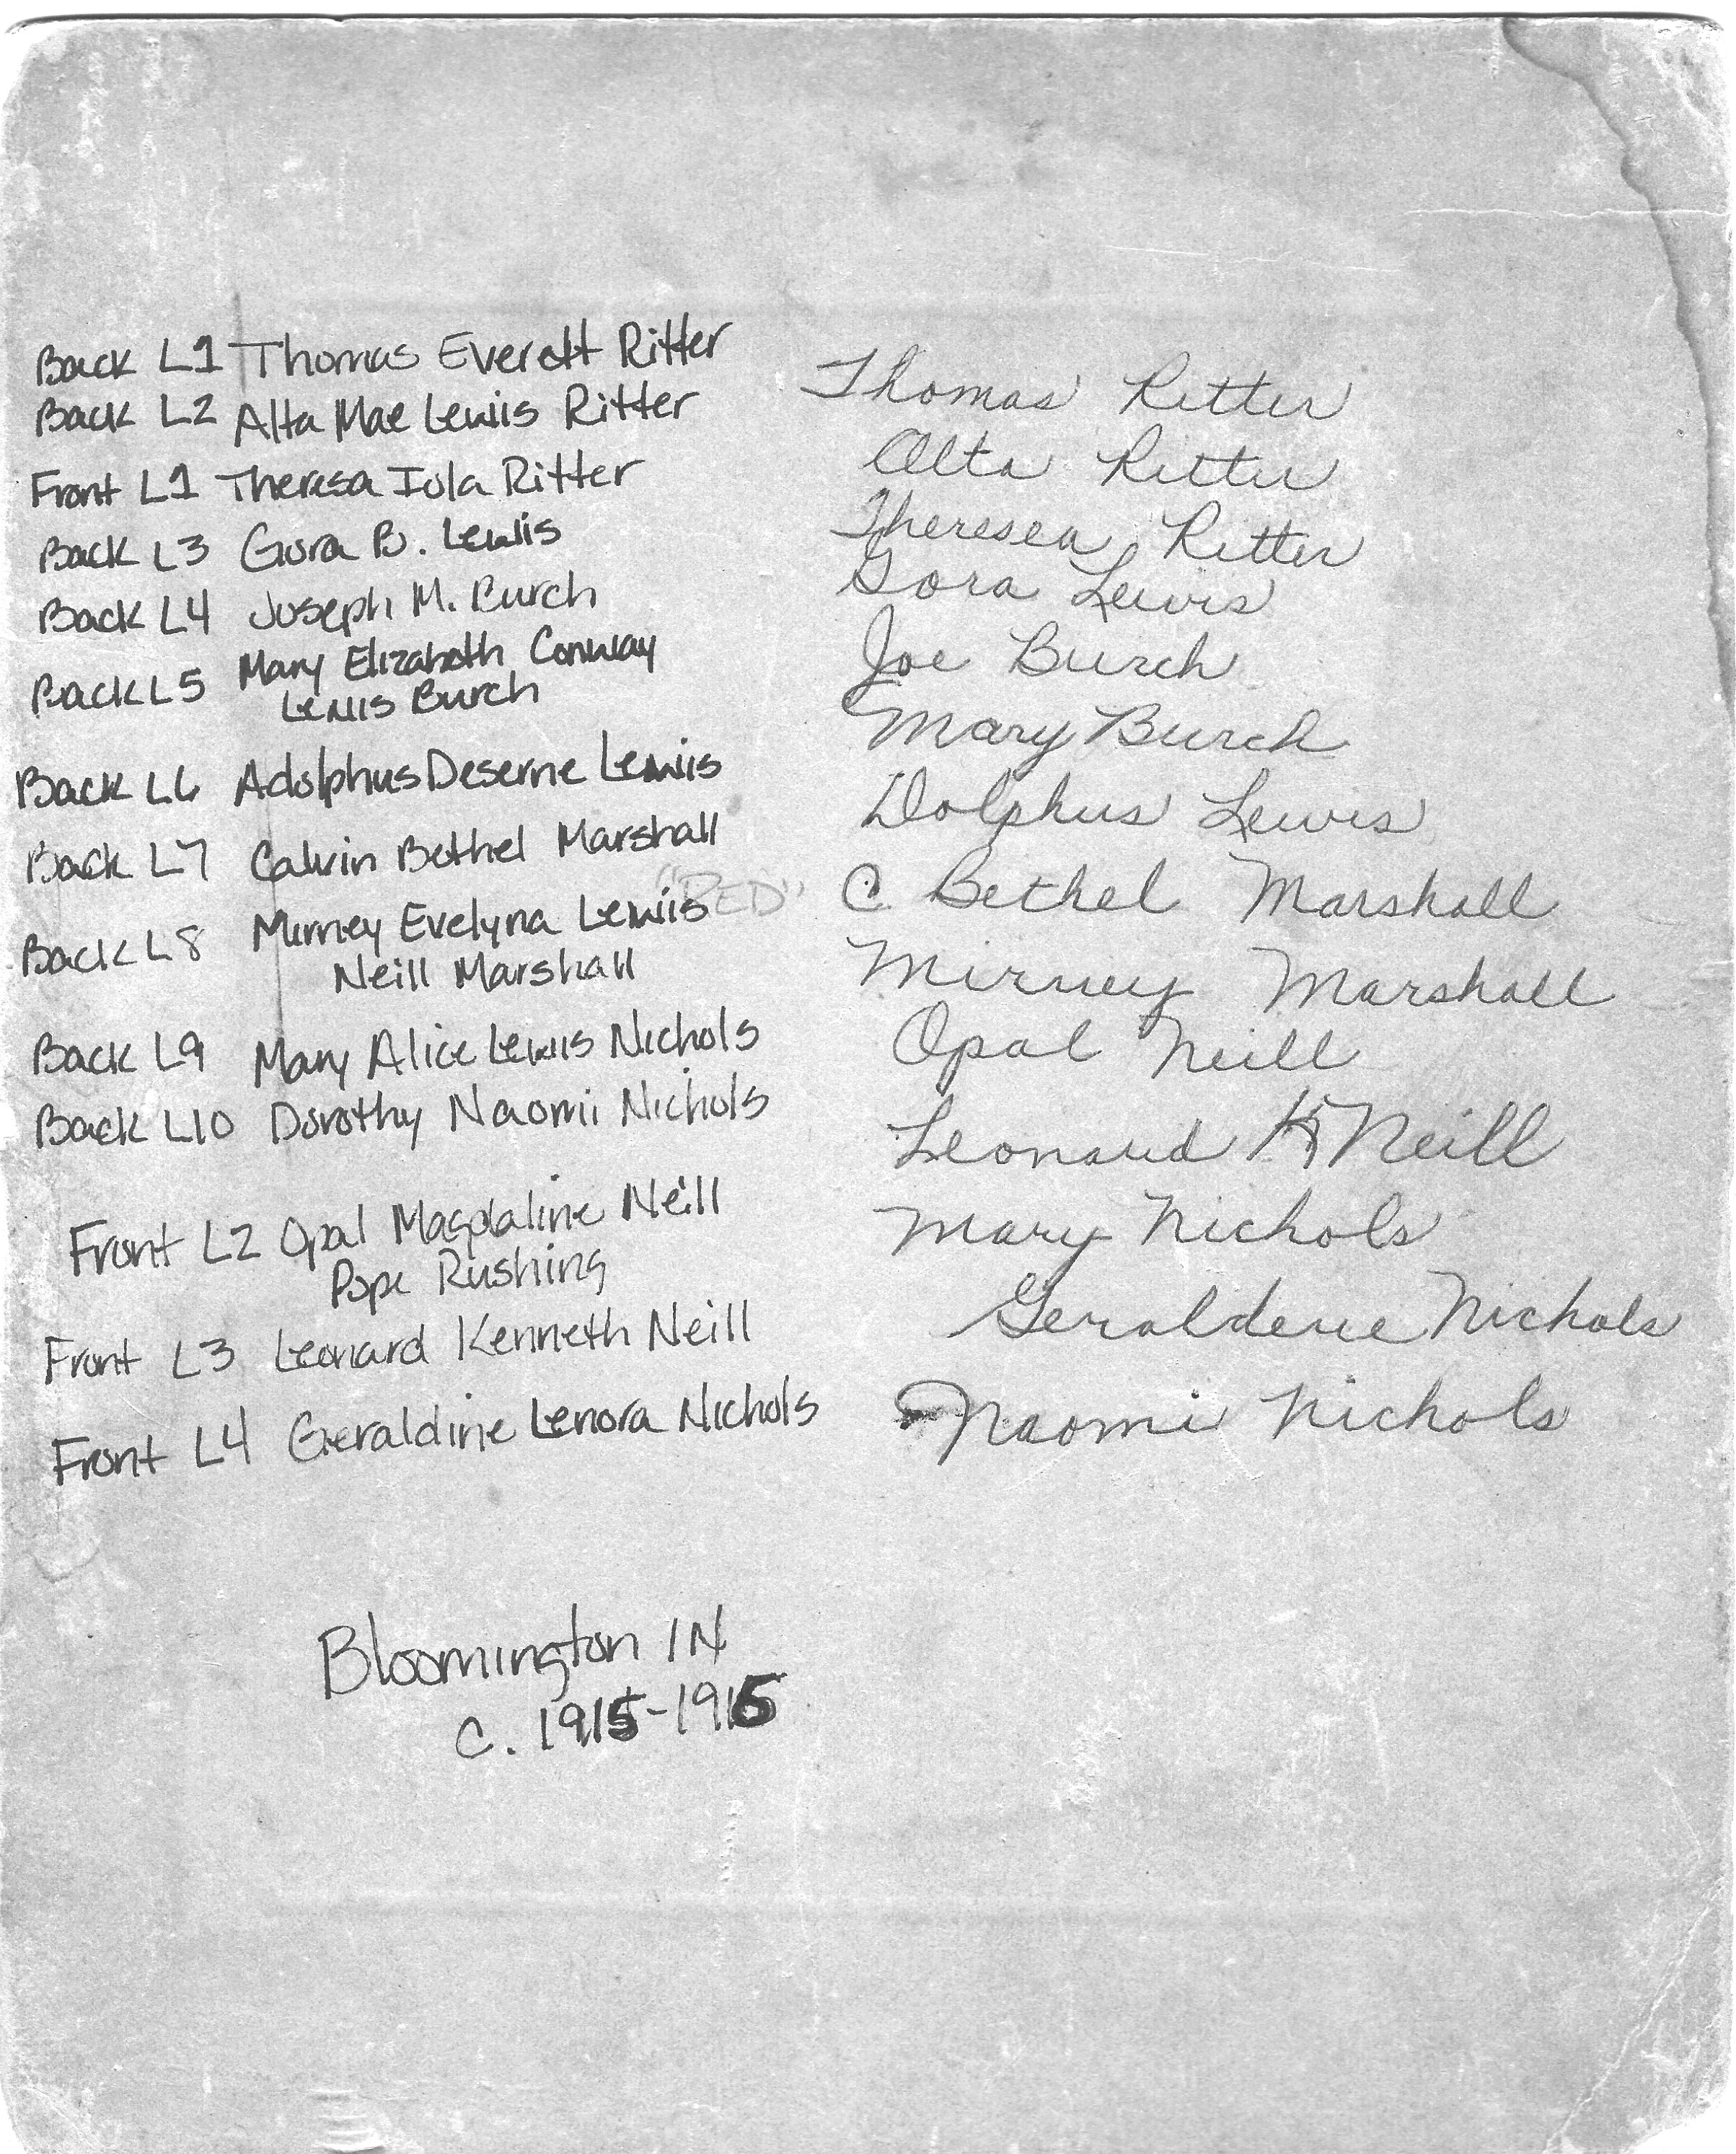 Back L1 Thomas Everett Ritter
Back L2 Alta Mae Lewis Ritter
Front L1 Theresa Iola Ritter
Back L3 Gora B. Lewis
Back L4 Joseph M. Burch
Back L5 Mary Elizabeth Conway
Lewis Burch
Back L6 Adolphus Deserne Lewis
Back L7 Calvin Bethel Marshall
"RED"
Back L8 Mirney Evelyna Lewis
Neill Marshall
Back L9 Mary Alice Lewis Nichols
Back L10 Dorothy Naomi Nichols
Front L2 Opal Magdaline Neill
Pope Rushing
Front L3 Leonard Kenneth Neill
Front L4 Geraldine Lenora Nichols
Thomas Ritter
Alta Ritter
Theresea Ritter
Gora Lewis
Joe Burch
Mary Burch
Dolphus Lewis
C. Bethel Marshall
Mirney Marshall
Opal Neill
Leonard K Neill
Mary Nichols
Geraldene Nichols
Naomi Nichols
Bloomington IN
c. 1915-1916